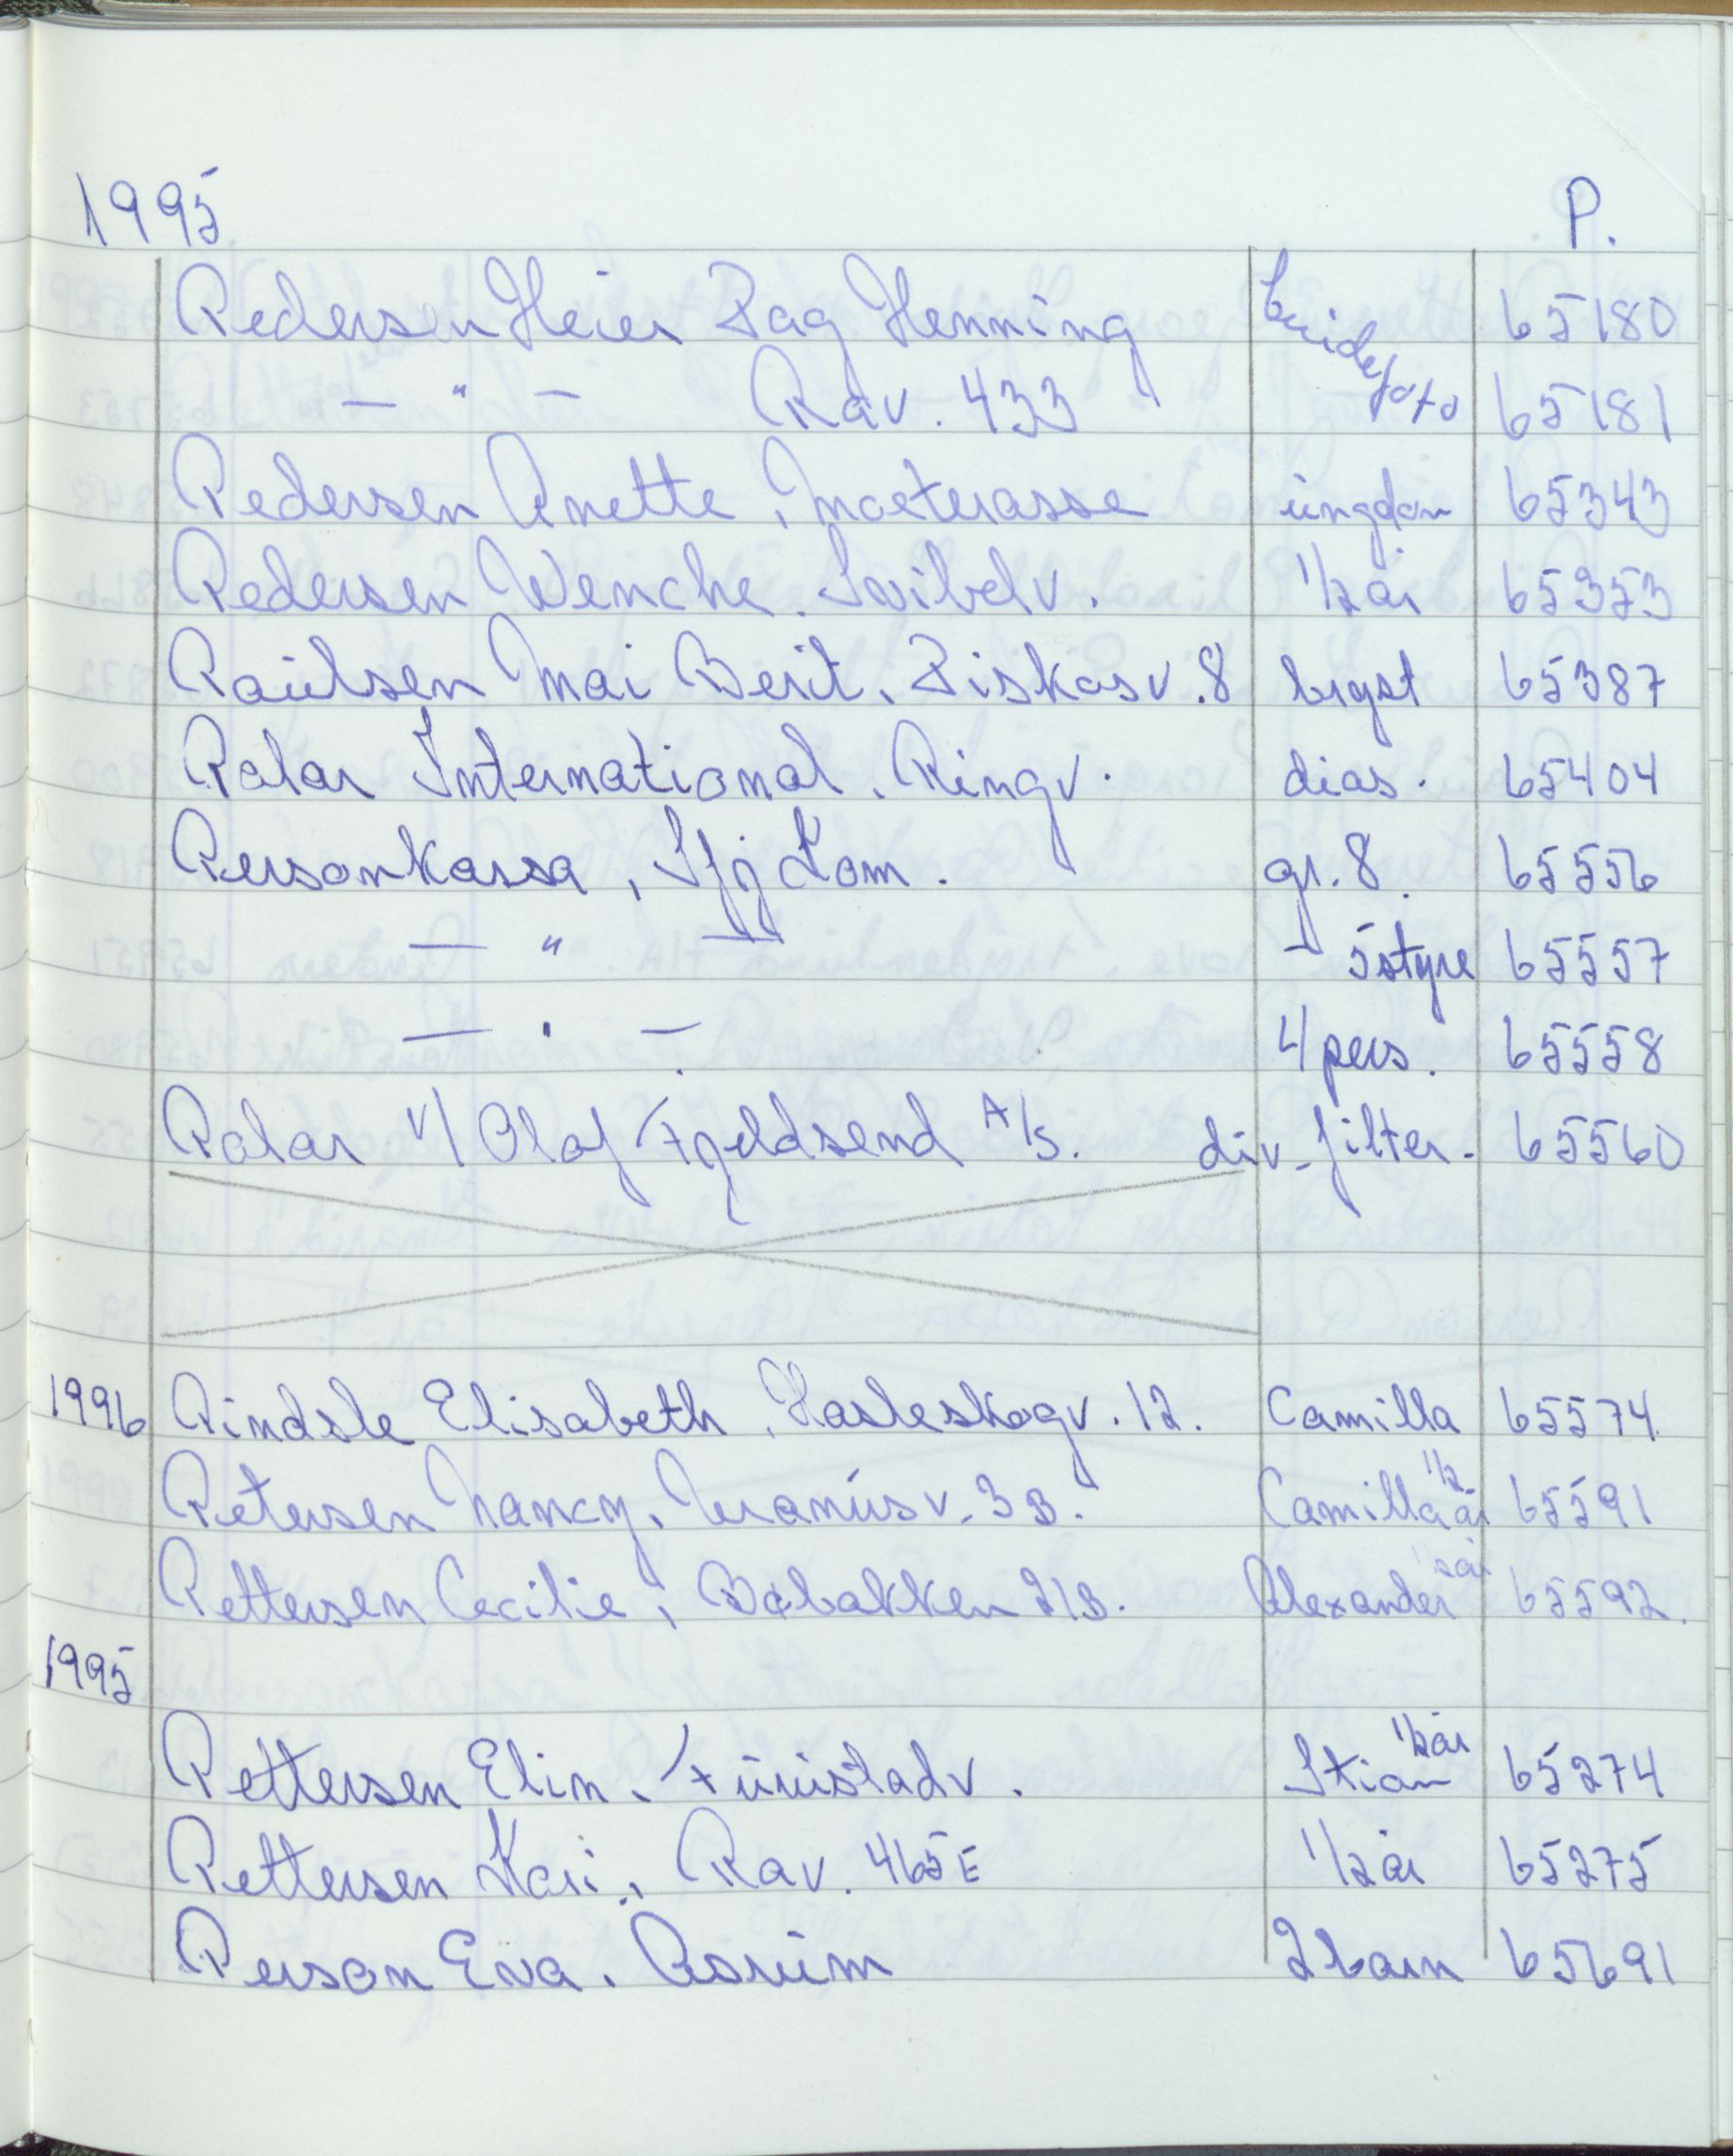 1995 P.
Pedersen Heier Dag Henning brudefoto 65180
— " — Rav. 433 65181
Pedersen Anette, Moeterasse ungdom 65343
Pedersen Wenche. Svibelv. 1/2 år 65353
Paulsen Mai Berit, Diskosv. 8 bryst 65387
Polar International. Ringv. dias. 65404
Personkassa, Sfj Kom. gr. 8. 65556
— " — — 5 styre 65557
— " — 4 pers. 65558
Polar v/ Olaf Fjeldsend A/S. div. filter. 65560
1996 Pindsle Elisabeth, Hasleskogv. 12. Camilla 65574
Petersen Nancy, Uranusv. 3B. Camilla 1/2 år 65591
Pettersen Cecilie, Bøbakken 21B. Alexander 1/2 år 65592.
1995
Pettersen Elin, Furustadv. Stian 1/2 år 65274
Pettersen Kari, Rav. 465E 1/2 år 65275
Person Eva. Åsrum 2 barn 65691